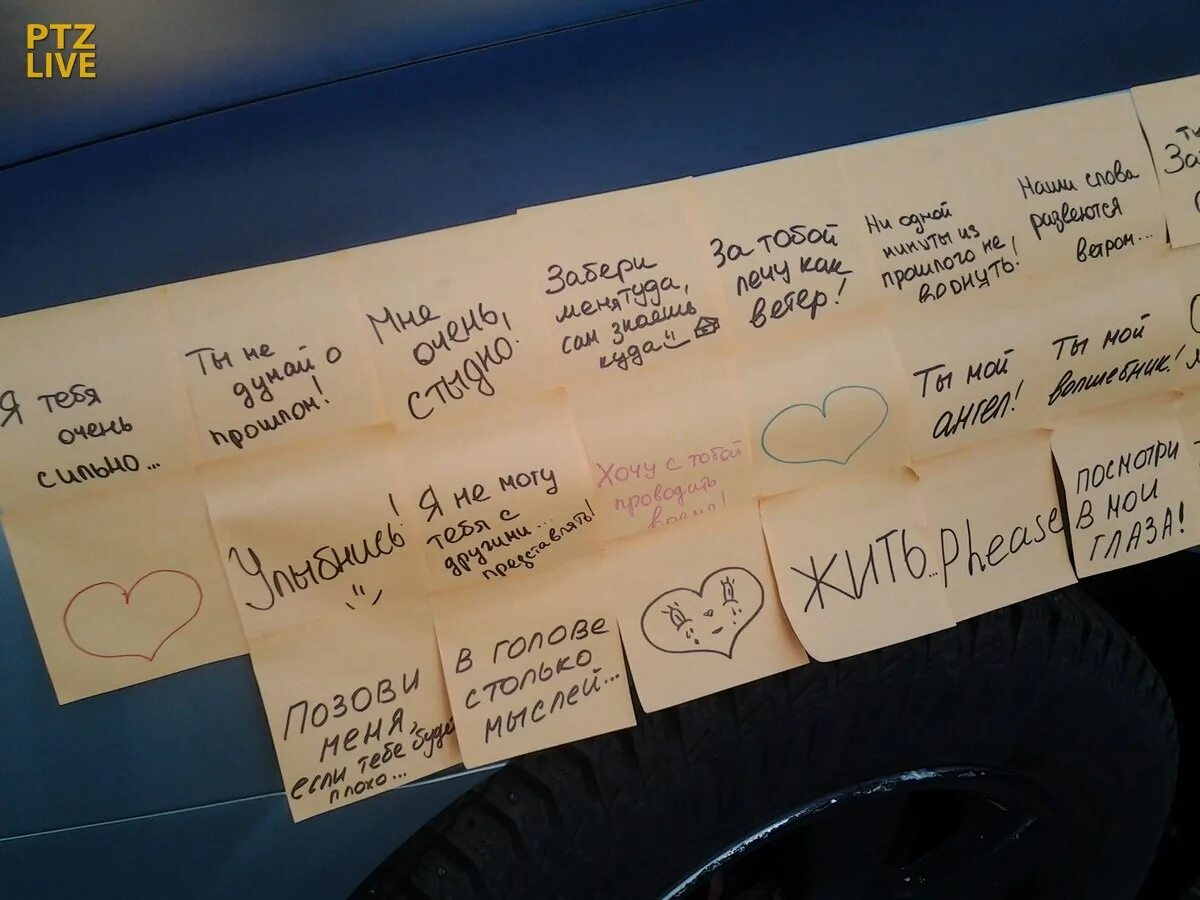 PTZ
LIVE
Я тебя
очень
сильно...
Ты не
думай о
прошлом!
Мне
очень,
стыдно.
Забери
меня туда,
сам знаешь
куда
За тобой
лечу как
ветер!
Ни одной
минуты из
прошлого не
вернуть!
Наши слова
развеются
ветром...
Улыбнись!
Я не могу
тебя с
другими...
представлять!
Хочу с тобой
проводить
время!
Ты мой
ангел!
Ты мой
волшебник!
Позови
меня,
если тебе будет
плохо...
В голове
столько
мыслей...
ЖИТЬ...
Phease
ПОСМОТРИ
В МОИ
ГЛАЗА!